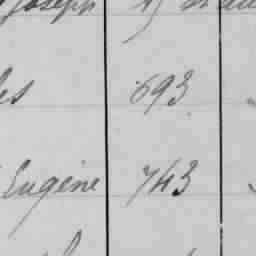 Joseph
es 693
Eugène 743